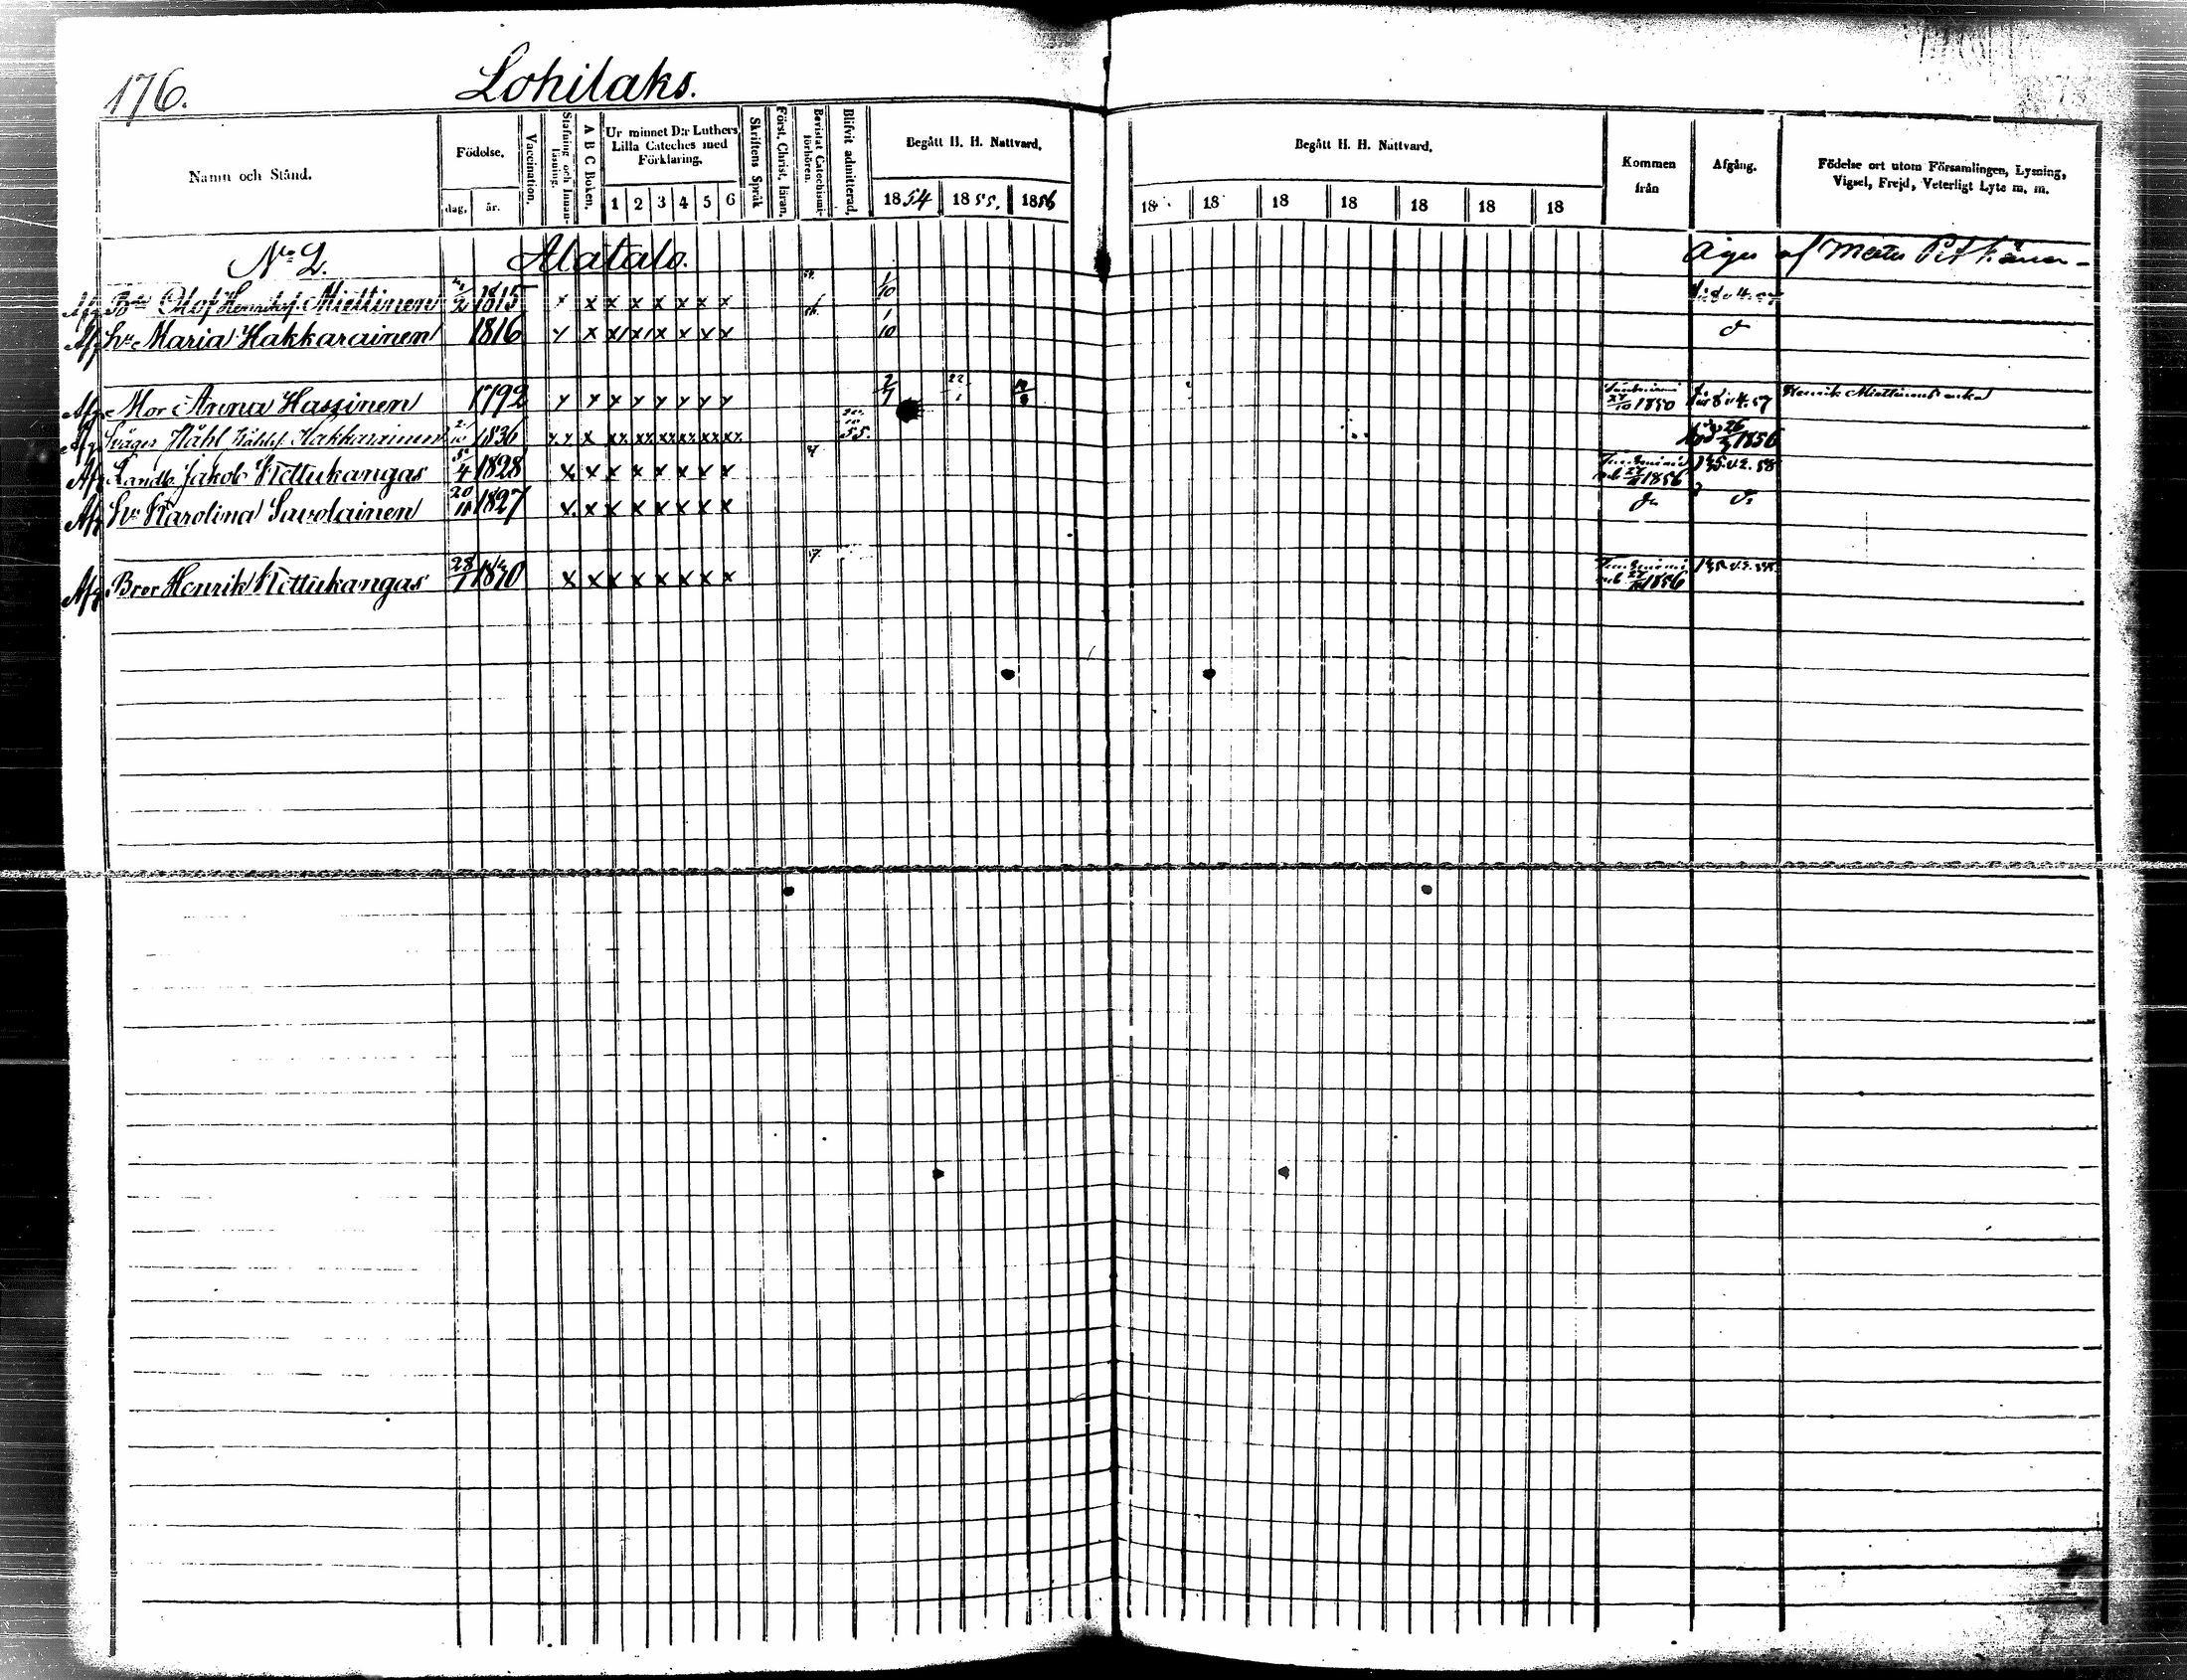 176. Lohilaks.
Namn och Stånd. Födelse. dag. år. Vaccination. Stafning och Innanläsning. A B C Boken. Ur minnet D:r Luthers Lilla Cateches med Förklaring. 1 2 3 4 5 6 Skriftens Språk Först. Christ. läran. Bevistat Catechismiförhören. Blifvit admitterad. Begått H. H. Nattvard. 1854 1855. 1856 Begått H. H. Nattvard. 18 18 18 18 18 18 18 Kommen från Afgång. Födelse ort utom Församlingen, Lysning, Vigsel, Frejd, Veterligt Lyte m. m.
No 2. Alatalo. Äges af
Afg Olof Henriksf. Miettinen 1815 x x x x x x x x 1/10
Afg Hu Maria Hakkarainen 1816 x x x x x x x x 1/10
Afg Mor Anna Hassinen 1792 x x x x x x x x 2/7 1850 Henrik Miettinens enka
Afg Svåger Påhl Påhlsf. Hakkarainen 1836 x x x xx xx xx xx xx xx 55. 1856
Afg Landb. Jakob Kettukangas 4 1828 x x x x x x x x 1856
Afg Hu Karolina Savolainen 20 1827 x x x x x x x x
Afg Bror Henrik Kettukangas 28/1 x x x x x x x x 1856